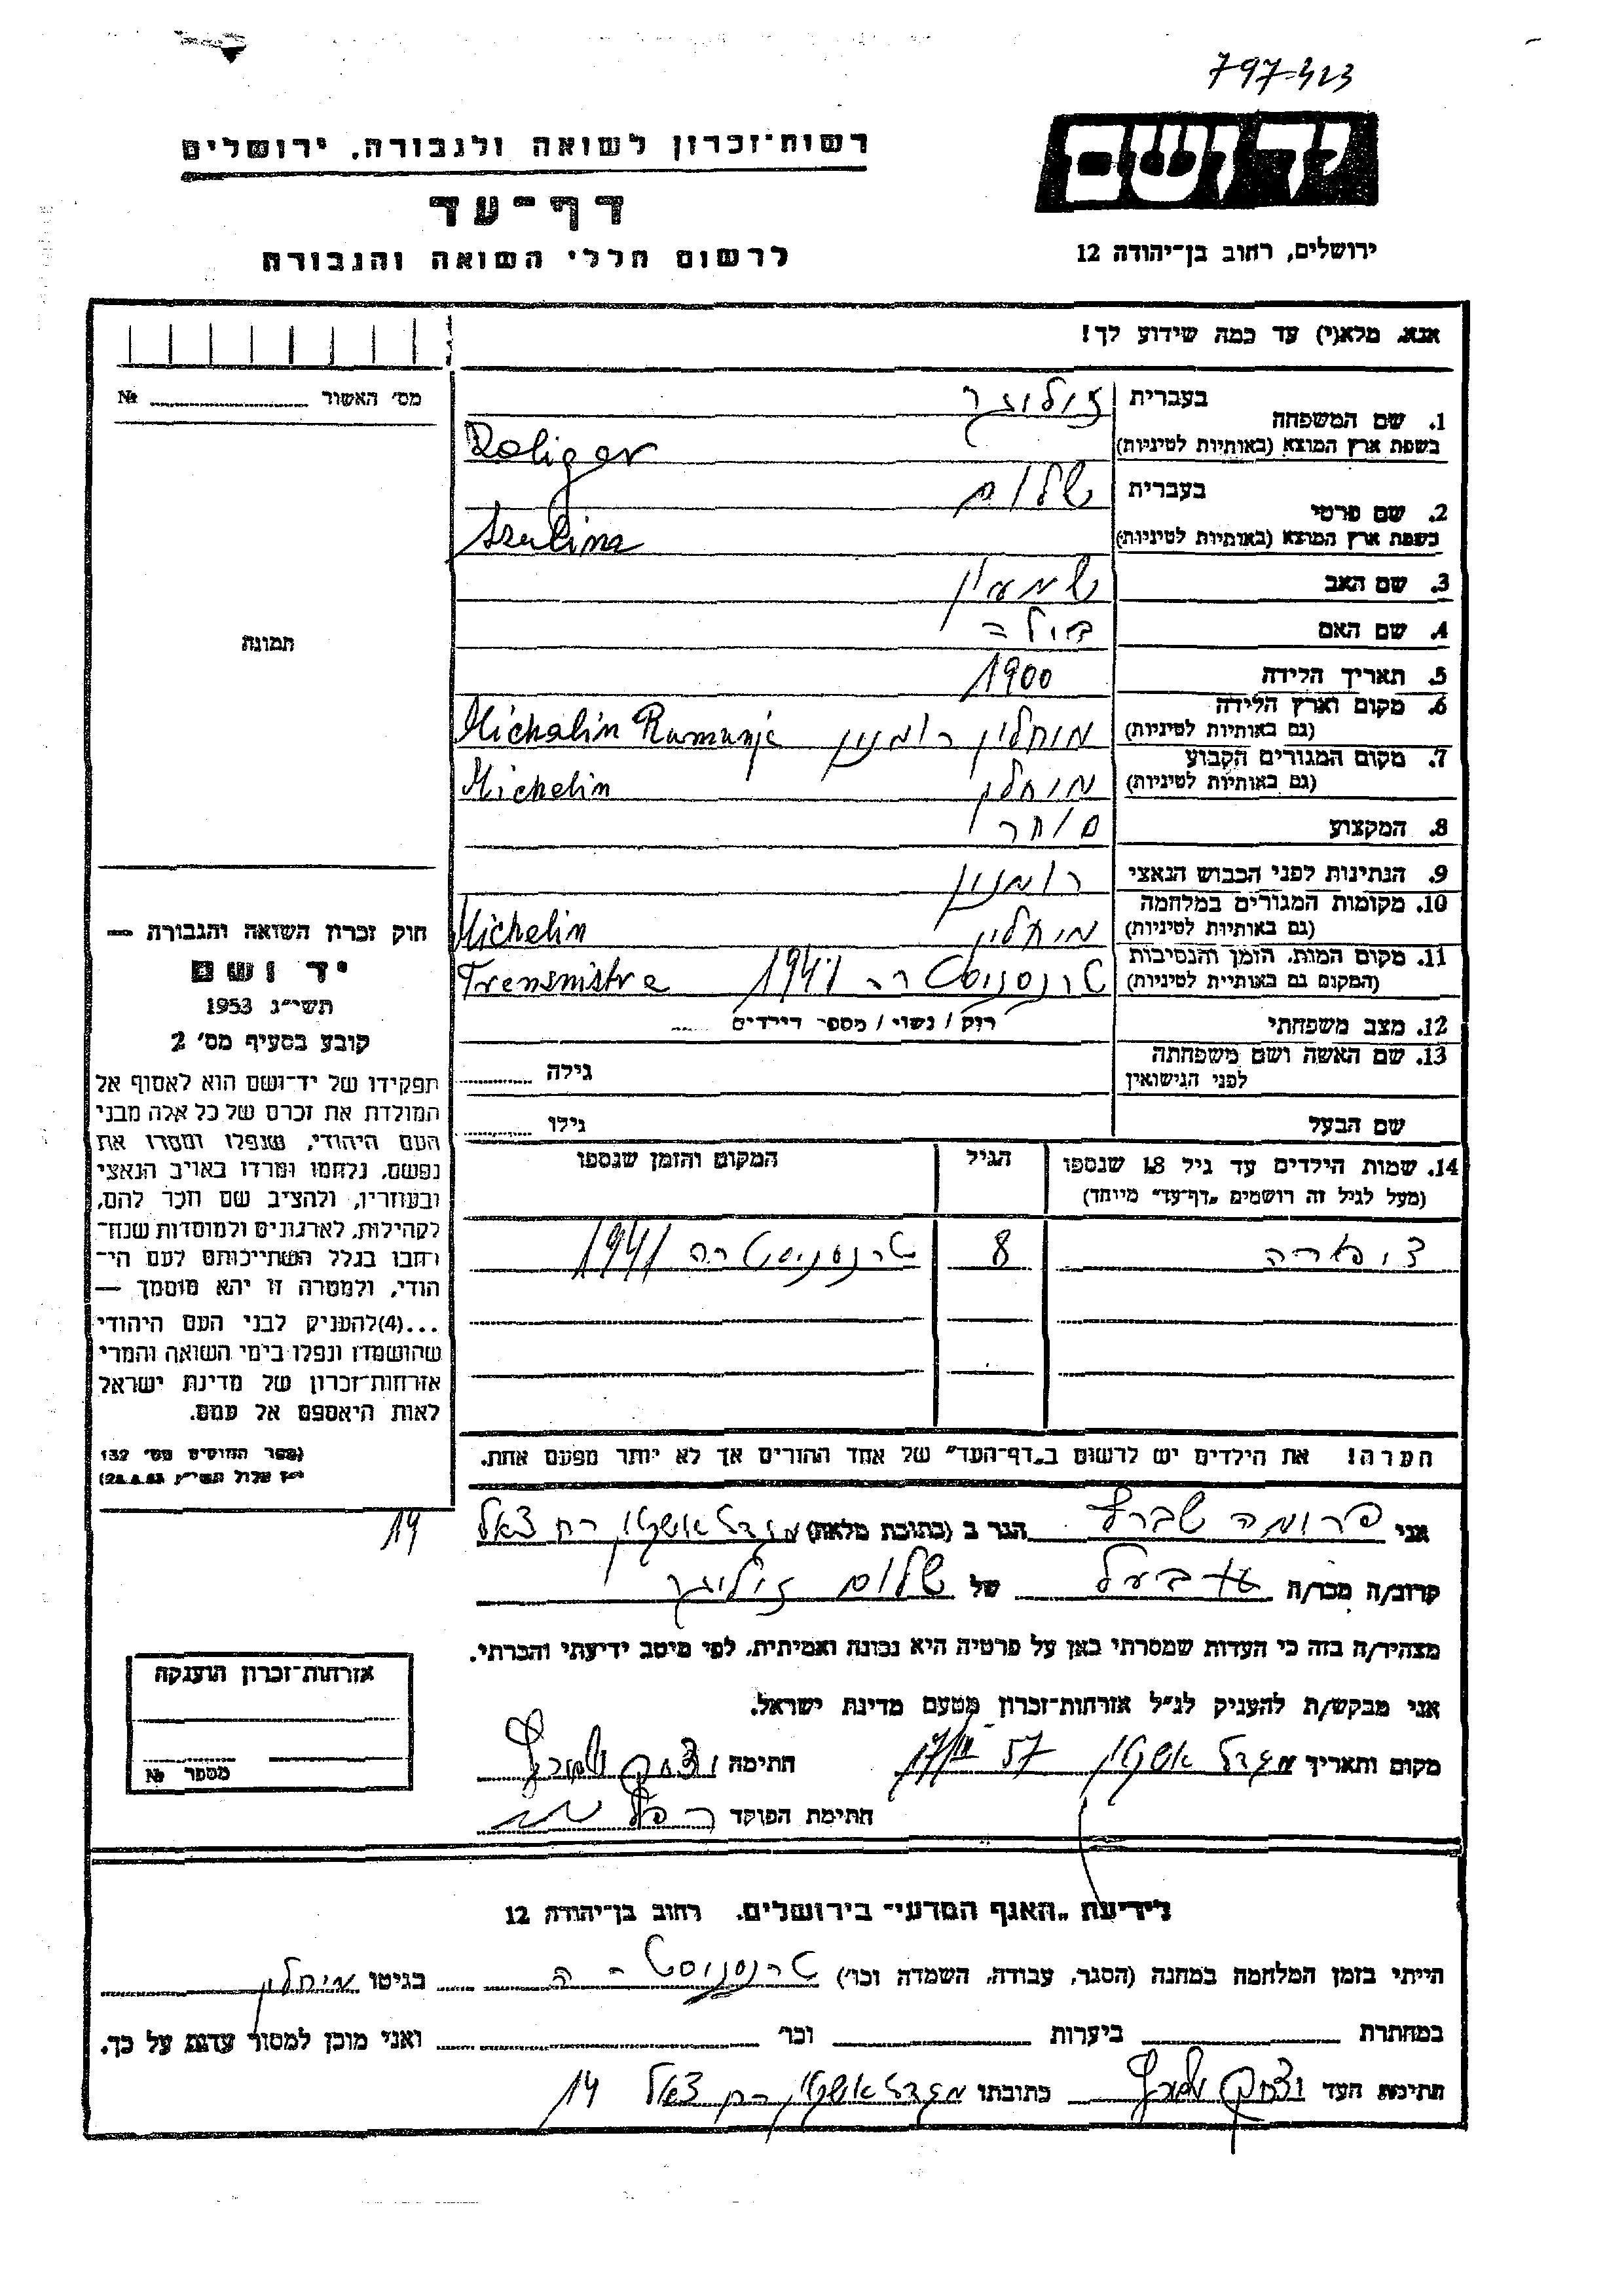 797323
רשות־זכרון לשואה ולגבורה, ירושלים
יד ושם
דף־עד
לרשום חללי השואה והגבורה
ירושלים, רחוב בן־יהודה 12
אנא, מלא(י) עד כמה שידוע לך!
מס׳ האשור № 
1. שם המשפחה
בעברית
בשפת ארץ המוצא (באותיות לטיניות)
Roliger
2. שם פרטי
בעברית שלום
בשפת ארץ המוצא (באותיות לטיניות)
3. שם האב שמעון
4. שם האם
5. תאריך הלידה 1900
6. מקום וארץ הלידה
(גם באותיות לטיניות) מיחלין רומנין Michalin Rumunje
7. מקום המגורים הקבוע
(גם באותיות לטיניות) מיחלין Michelin
8. המקצוע סוחר
9. הנתינות לפני הכבוש הנאצי רומנין
10. מקומות המגורים במלחמה
(גם באותיות לטיניות) מיחלין Michelin
11. מקום המות, הזמן והנסיבות
(המקום גם באותיות לטיניות) טרנסניסטרה 1941 Trensnistre
12. מצב משפחתי רוק / נשוי / מספר הילדים
13. שם האשה ושם משפחתה
לפני הנישואין
גילה
שם הבעל גילו
תמונה
חוק זכרון השואה והגבורה —
יד ושם
תשי״ג 1953
קובע בסעיף מס׳ 2
תפקידו של יד־ושם הוא לאסוף אל
המולדת את זכרם של כל אלה מבני
העם היהודי, שנפלו ומסרו את
נפשם, נלחמו ומרדו באויב הנאצי
ובעוזריו, ולהציב שם וזכר להם,
לקהילות, לארגונים ולמוסדות שנח־
רחבו בגלל השתייכותם לעם הי־
הודי, ולמטרה זו יהא מוסמך —
...(4) להעניק לבני העם היהודי
שהושמדו ונפלו בימי השואה והמרי
אזרחות־זכרון של מדינת ישראל
לאות היאספם אל עמם.
(ספר החוקים מס׳ 132
14. שמות הילדים עד גיל 18 שנספו
(מעל לגיל זה רושמים „דף־עד״ מיוחד)
הגיל
המקום והזמן שנספו
8 טרנסניסטרה 1941
הערה! את הילדים יש לרשום ב„דף־העד״ של אחד ההורים אך לא יותר מפעם אחת.
אני פרומה הגר ב (כתובת מלאה) מגדל אשקלון רח צאל 14
קרוב/ה מכר/ה של שלום
מצהיר/ה בזה כי העדות שמסרתי כאן על פרטיה היא נכונה ואמיתית, לפי מיטב ידיעתי והכרתי.
אני מבקש/ת להעניק לנ״ל אזרחות־זכרון מטעם מדינת ישראל.
מקום ותאריך מגדל אשקלון 57 חתימה
חתימת הפוקד
אזרחות־זכרון הוענקה
מספר №
לידיעת „האגף המדעי״ בירושלים, רחוב בן־יהודה 12
הייתי בזמן המלחמה במחנה (הסגר, עבודה, השמדה וכו׳) טרנסניסטרה בגיטו מיחלין
במחתרת ביערות וכו׳ ואני מוכן למסור עדות על כך.
חתימת העד כתובתו מגדל אשקלון רח צאל 14